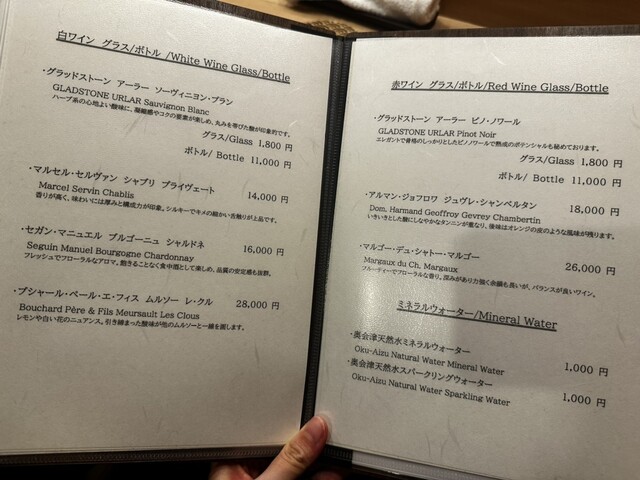 白ワイン グラス/ボトル /White Wine Glass/Bottle
・グラッドストーン アーラー ソーヴィニヨン・ブラン
GLADSTONE URLAR Sauvignon Blanc
ハーブ系の心地よい酸味に、凝縮感やコクの要素が楽しめ、丸みを帯びた酸が印象的です。
グラス/Glass 1,800 円
ボトル/ Bottle 11,000 円
・マルセル・セルヴァン シャブリ プライヴェート 14,000 円
Marcel Servin Chablis
香りが高く、味わいには厚みと構成力が印象。シルキーでキメの細かい舌触りが上品です。
・セガン・マニュエル ブルゴーニュ シャルドネ 16,000 円
Seguin Manuel Bourgogne Chardonnay
フレッシュでフローラルなアロマ。飽きることなく食中酒として楽しめ、品質の安定感も抜群。
・ブシャール・ペール・エ・フィス ムルソー レ・クル 28,000 円
Bouchard Père & Fils Meursault Les Clous
レモンや白い花のニュアンス。引き締まった酸味が他のムルソーと一線を画します。
赤ワイン グラス/ボトル/Red Wine Glass/Bottle
・グラッドストーン アーラー ピノ・ノワール
GLADSTONE URLAR Pinot Noir
エレガントで骨格のしっかりとしたピノノワールで熟成のポテンシャルも秘めております。
グラス/Glass 1,800 円
ボトル/ Bottle 11,000 円
・アルマン・ジョフロワ ジュヴレ・シャンベルタン 18,000 円
Dom. Harmand Geoffroy Gevrey Chambertin
いきいきとした酸にしなやかなタンニンが重なり、後味はオレンジの皮のような風味が残ります。
・マルゴー・デュ・シャトー・マルゴー 26,000 円
Margaux du Ch. Margaux
フルーティーでフローラルな香り。深みがあり力強く余韻も長いが、バランスが良いワイン。
ミネラルウォーター/Mineral Water
・奥会津天然水ミネラルウォーター 1,000 円
Oku-Aizu Natural Water Mineral Water
・奥会津天然水スパークリングウォーター 1,000 円
Oku-Aizu Natural Water Sparkling Water